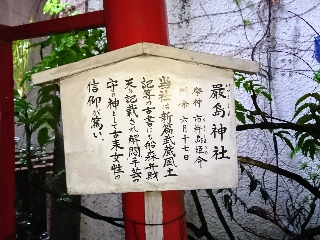 嚴島神社
祭神 市杵島姫命
例祭 六月十七日
当社は新篇武蔵風土
記等の古書にも船森弁財
天と記載され解間手芸の
守の神として古来女性の
信仰が篤い